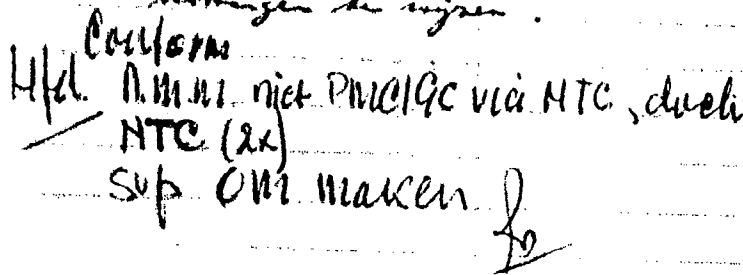 te wijzen.
Conform
Hfd. A.m.m. niet PMC/GC via HTC, doch
HTC (2x)
sup om maken